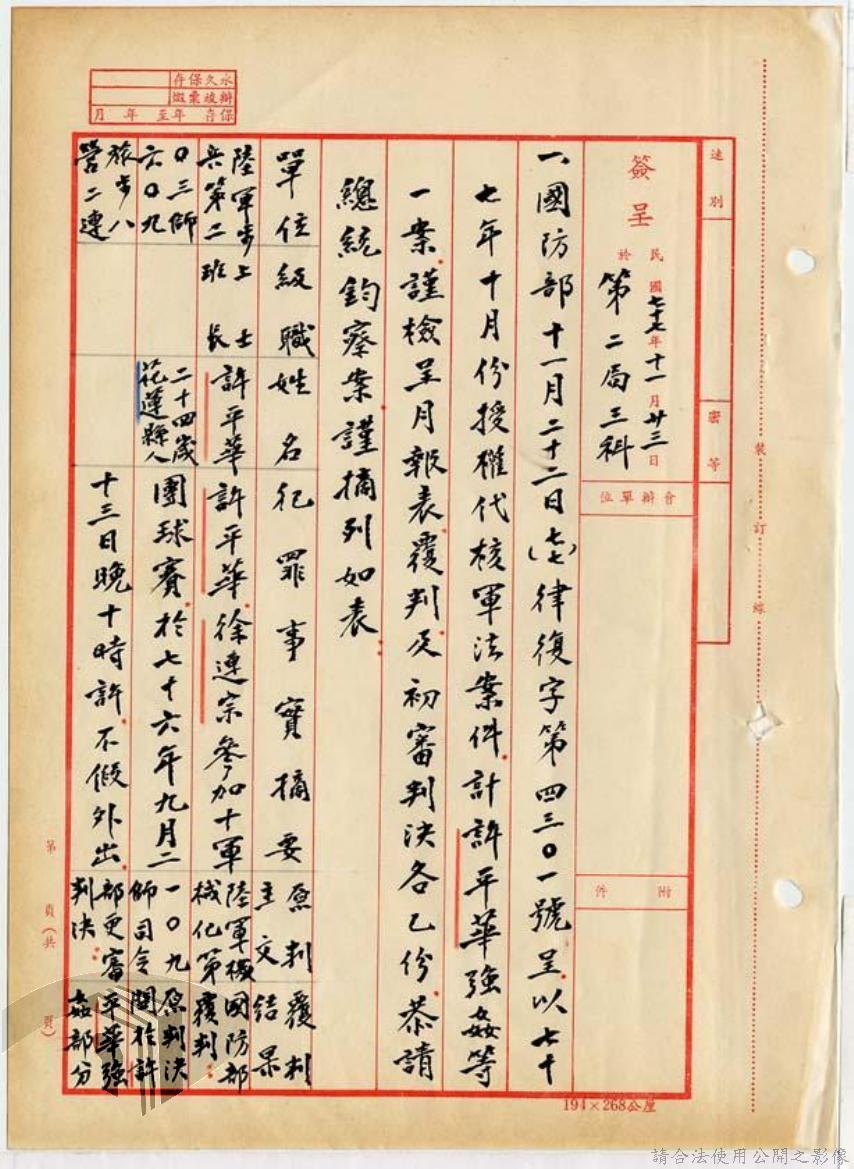 永久保存
辦竣彙緞
保存 年至 年 月
速別
密等
簽呈 於 民國七十七年十一月廿三日
第二局三科
會辦單位
附件
一、國防部十一月二十二日(七七)律復字第四三〇一號呈,以七十
七年十月份授權代核軍法案件,計許平華強姦等
一案,謹檢呈月報表、覆判及初審判決各乙份,恭請
總統鈞察案,謹摘列如表:
單位級職 姓名 犯罪事實摘要 原判主文 覆判結果
陸軍步上士
兵第二班長
〇三師
六〇九
旅步八
營二連
許平華
二十四歲
花蓮縣人
許平華、徐連宗參加十軍
團球賽,於七十六年九月二
十三日晚十時許,不假外出,
陸軍機
械化第
一〇九
師司令
部更審
判決:
國防部
覆判:
原判決
關於許
平華強
姦部分
裝訂線
第 頁(共 頁)
194×268公厘
請合法使用公開之影像